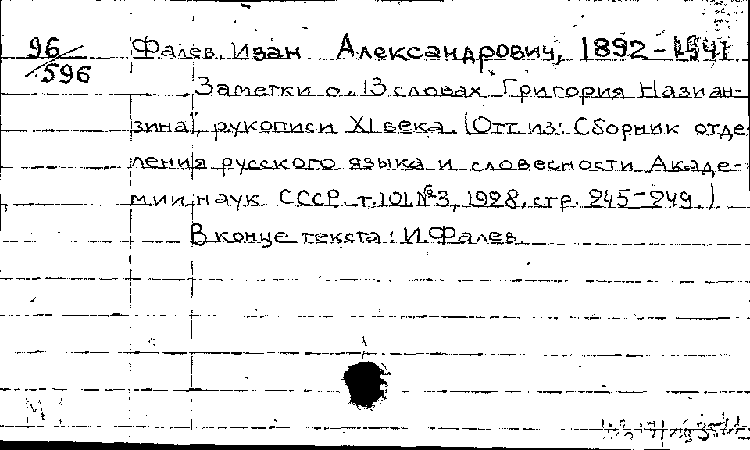 96/596
Фалев, Иван Александрович, 1892-1941
Заметки о "13 словах Григория Назиан-
зина", рукописи XI века. (Отт. из: Сборник отде-
ления русского языка и словесности Акаде-
мии наук СССР т. 101, №3, 1928, стр. 245-249.)
В конце текста: И. Фалев.
М